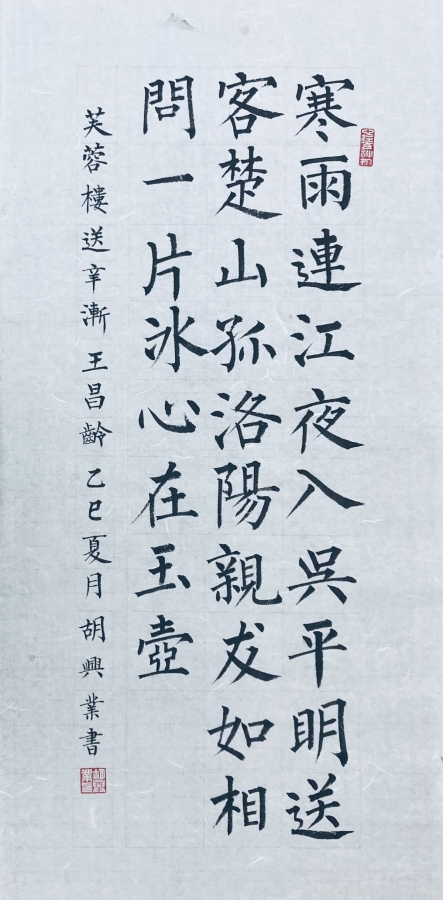 寒雨連江夜入吳平明送
客楚山孤洛陽親友如相
問一片冰心在玉壺
芙蓉樓送辛漸王昌齡乙巳夏月胡興業書